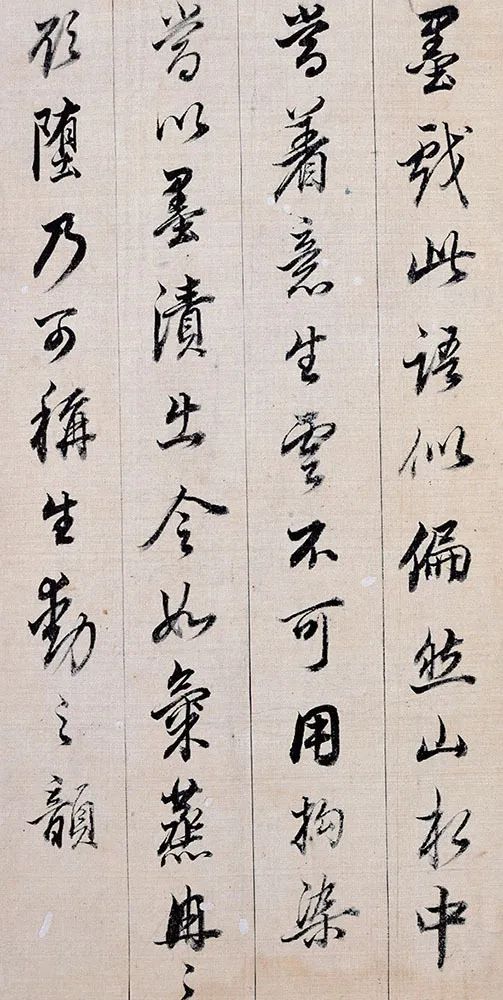 墨戲此語似偏然山水中
當着意生雲不可用拘染
當以墨漬出令如氣蒸冉〻
欲墮乃可稱生動之韻